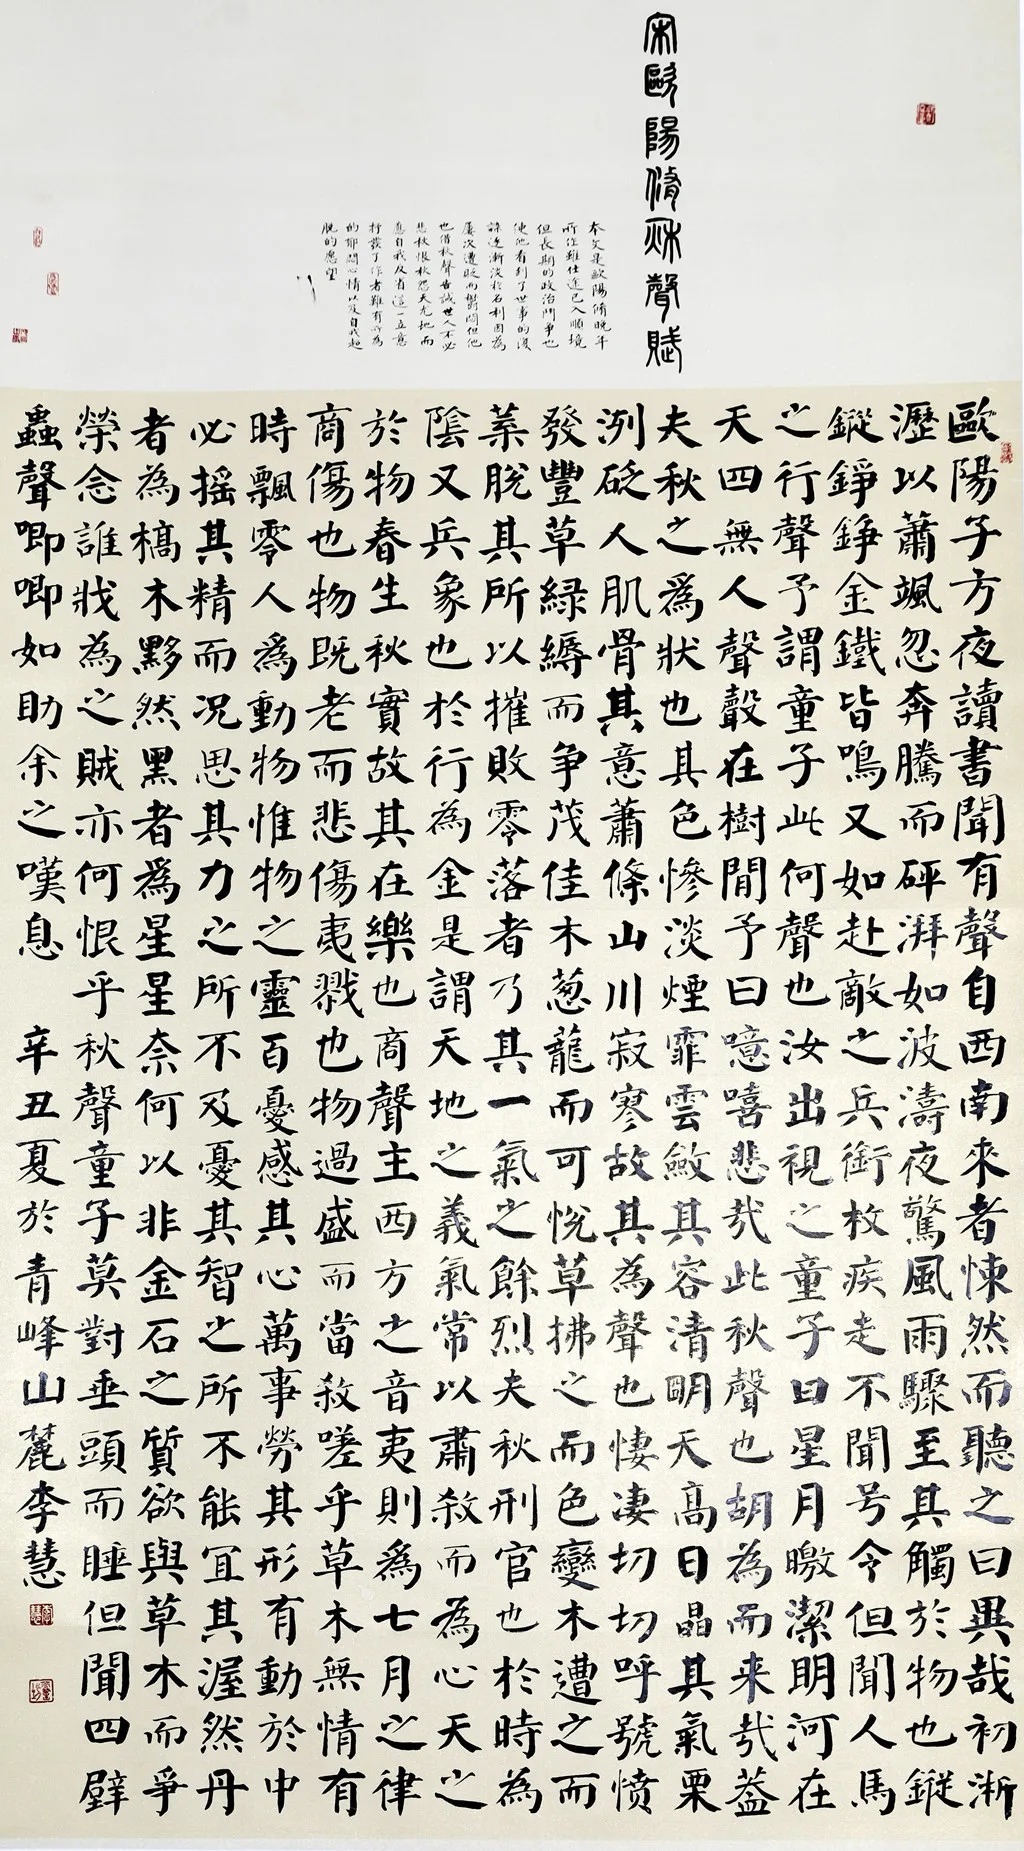 宋歐陽脩秋聲賦
本文是歐陽脩晚年
所作雖仕途已入順境
但長期的政治鬥爭也
使他看到了世事的復
雜逐漸淡於名利因為
屢次遭貶而鬱悶但他
也借秋聲告誡世人不必
悲秋恨秋怨天尤地而
應自我反省這一立意
抒發了作者難有所為
的郁悶心情以及自我超
脫的愿望
歐陽子方夜讀書聞有聲自西南來者悚然而聽之曰異哉初淅
瀝以蕭颯忽奔騰而砰湃如波濤夜驚風雨驟至其觸於物也鏦
鏦錚錚金鐵皆鳴又如赴敵之兵銜枚疾走不聞号令但聞人馬
之行聲予謂童子此何聲也汝出視之童子曰星月皦潔明河在
天四無人聲聲在樹間予曰噫嘻悲哉此秋聲也胡為而来哉蓋
夫秋之為狀也其色慘淡煙霏雲斂其容清明天高日晶其氣栗
冽砭人肌骨其意蕭條山川寂寥故其為聲也悽凄切切呼號憤
發豐草緑縟而争茂佳木葱蘢而可悅草拂之而色變木遭之而
葉脫其所以摧敗零落者乃其一氣之餘烈夫秋刑官也於時為
陰又兵象也於行為金是謂天地之義氣常以肅殺而為心天之
於物春生秋實故其在樂也商聲主西方之音夷則為七月之律
商傷也物既老而悲傷夷戮也物過盛而當殺嗟乎草木無情有
時飄零人為動物惟物之靈百憂感其心萬事勞其形有動於中
必摇其精而况思其力之所不及憂其智之所不能宜其渥然丹
者為槁木黟然黑者為星星奈何以非金石之質欲與草木而爭
榮念誰戕為之賊亦何恨乎秋聲童子莫對垂頭而睡但聞四壁
蟲聲唧唧如助余之嘆息 辛丑夏於青峰山麓李慧